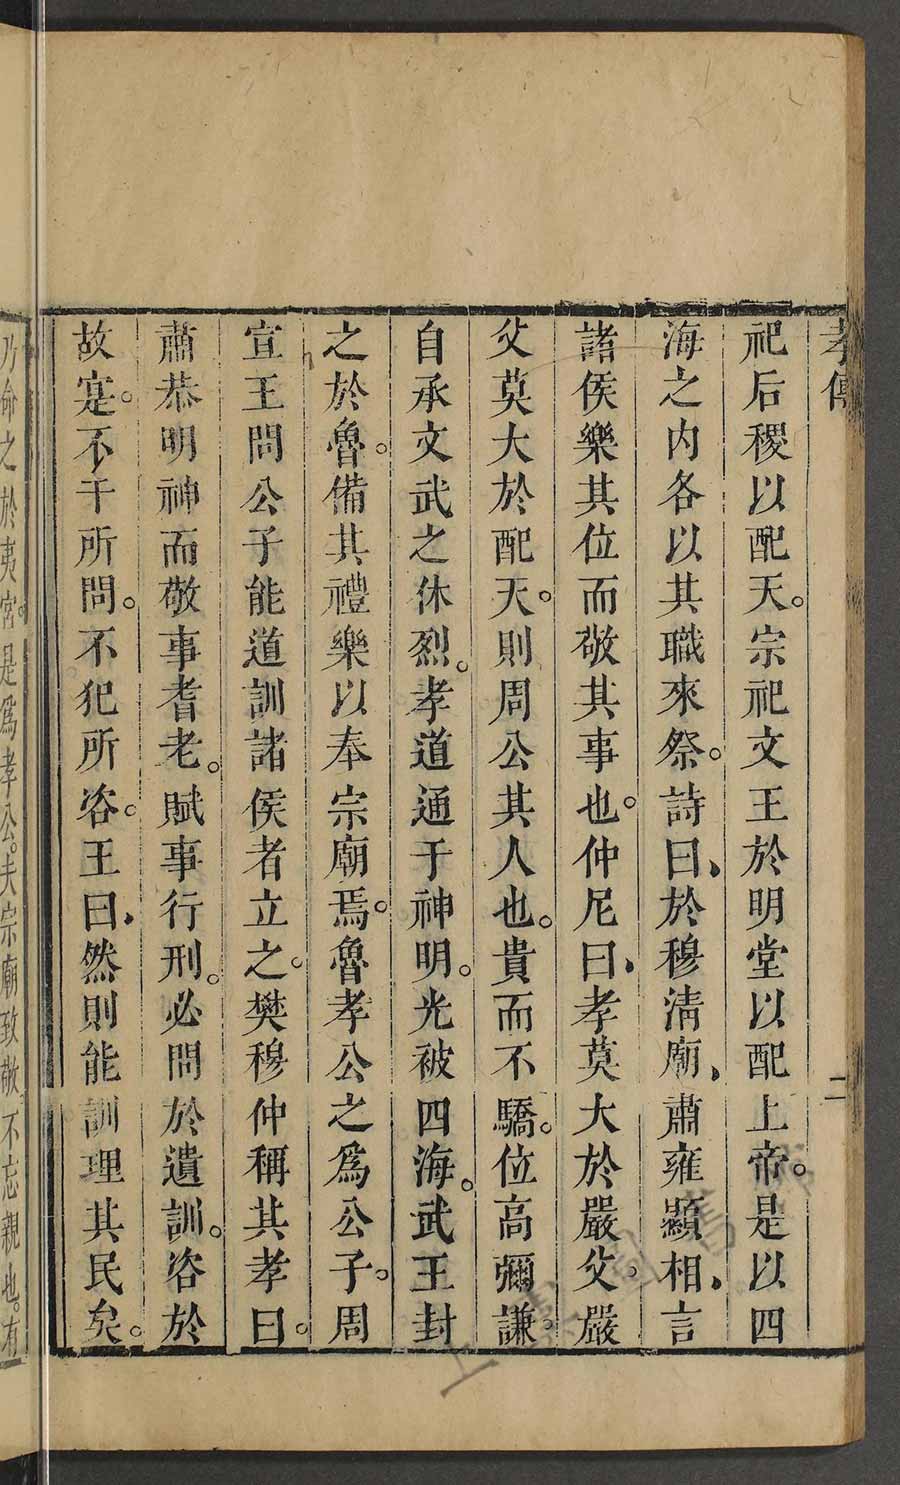 孝傳
二
祀后稷以配天。宗祀文王於明堂以配上帝。是以四
海之内各以其職來祭。詩曰、於穆淸廟、肅雍顯相、言
諸侯樂其位而敬其事也。仲尼曰、孝莫大於嚴父。嚴
父莫大於配天。則周公其人也。貴而不驕。位高彌謙。
自承文武之休烈。孝道通于神明。光被四海。武王封
之於魯。備其禮樂以奉宗廟焉。魯孝公之爲公子。周
宣王問公子能道訓諸侯者立之。樊穆仲稱其孝曰。
肅恭明神而敬事耆老。賦事行刑。必問於遺訓。咨於
故寔。不干所問。不犯所咨。王曰、然則能訓理其民矣。
乃命之於夷宮。是爲孝公。夫宗廟致敬不忘親也。有